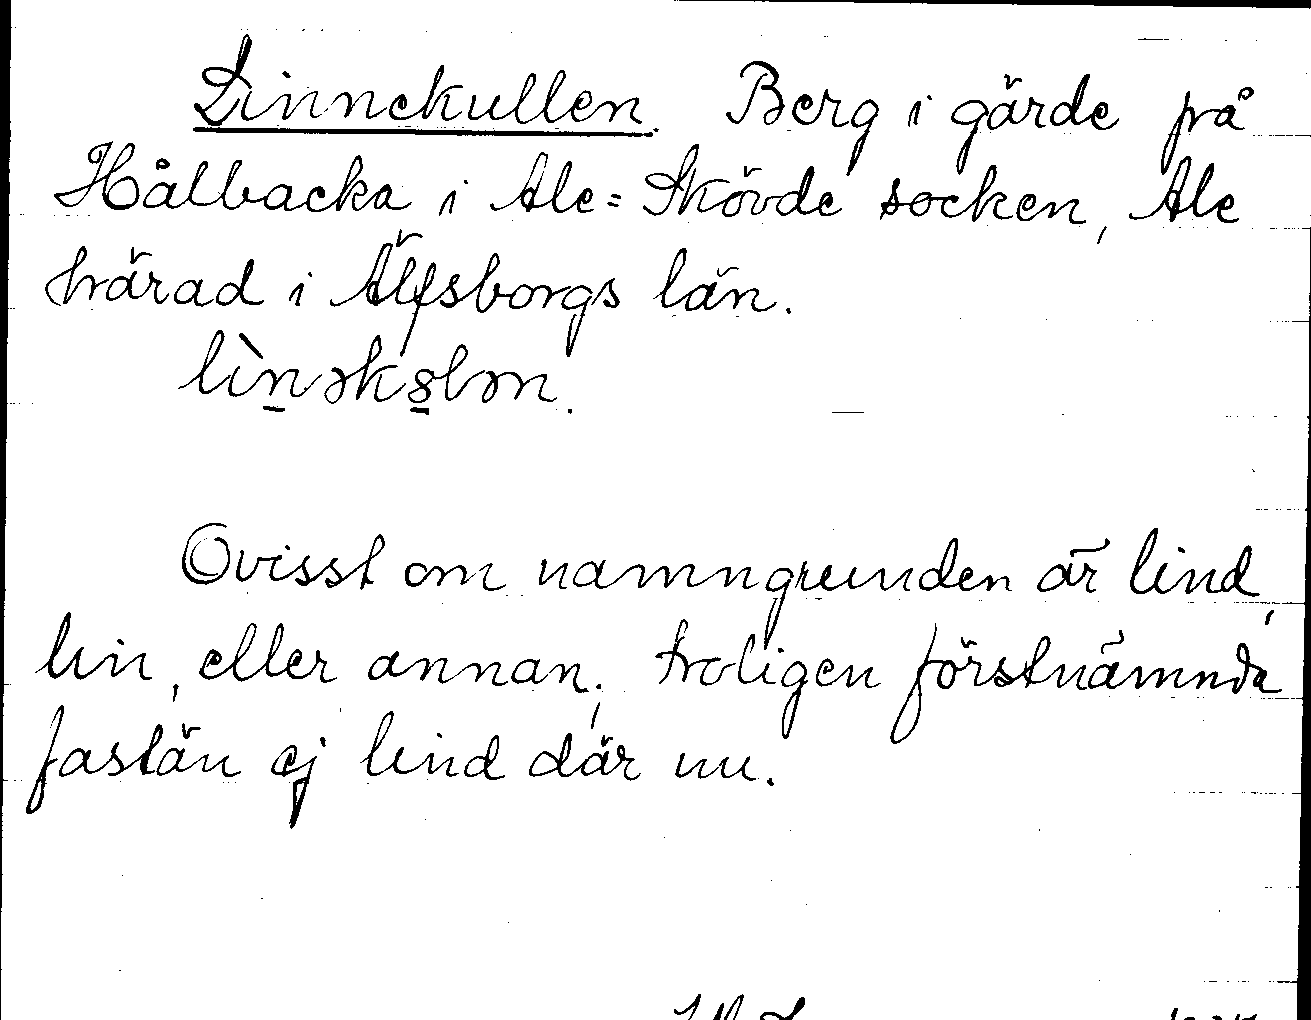 Linnekullen. Berg i gärde på
Hålbacka i Ale=Skövde socken, Ale
härad i Älfsborgs län.
Ovisst om namngrunden är lind,
lin, eller annan; troligen förstnämnda
fastän ej lind där nu.